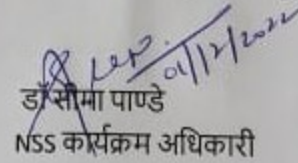 01/12/2022
डॉ सीमा पाण्डे
NSS कार्यक्रम अधिकारी